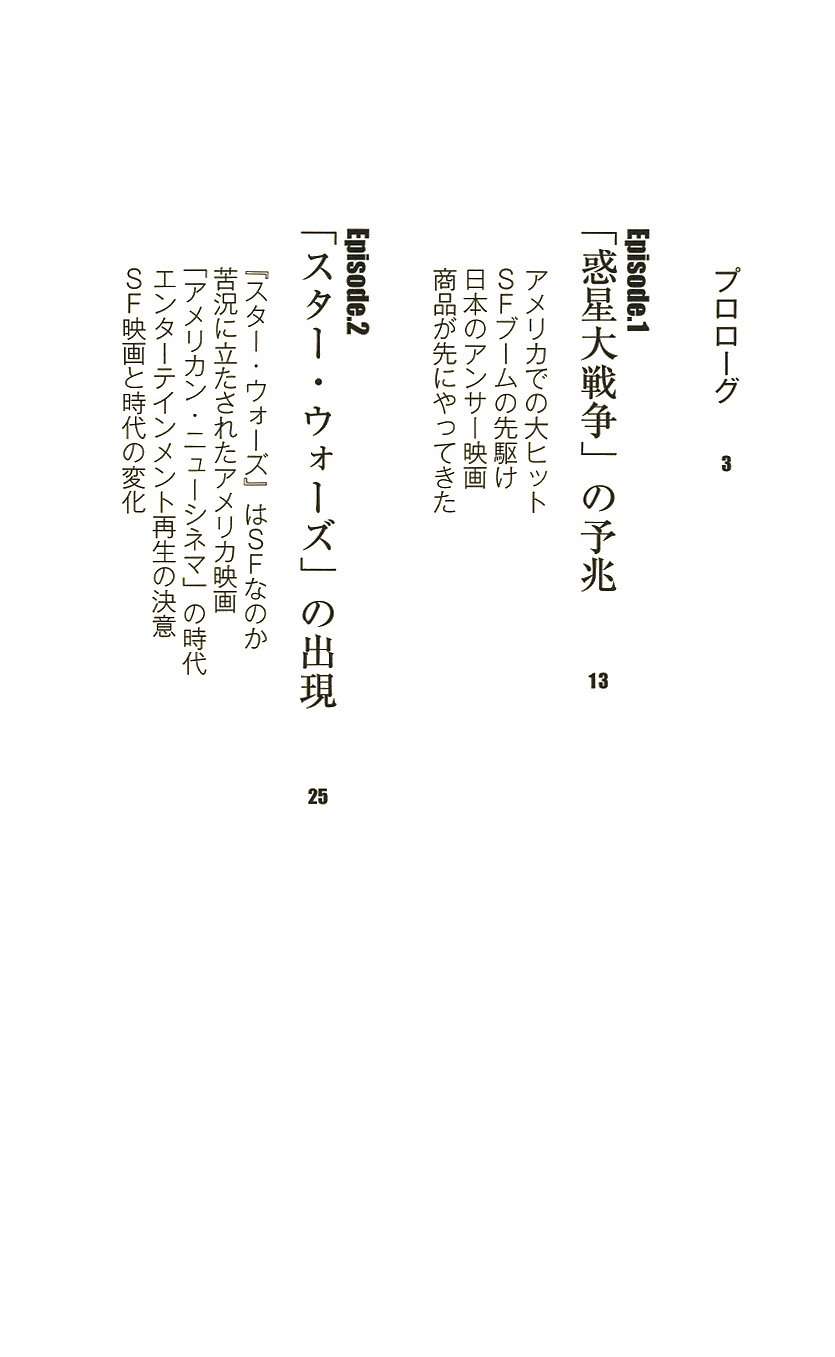 プロローグ
3
Episode.1
「惑星大戦争」の予兆
13
アメリカでの大ヒット
ＳＦブームの先駆け
日本のアンサー映画
商品が先にやってきた
Episode.2
「スター・ウォーズ」の出現
25
『スター・ウォーズ』はＳＦなのか
苦況に立たされたアメリカ映画
「アメリカン・ニューシネマ」の時代
エンターテインメント再生の決意
ＳＦ映画と時代の変化